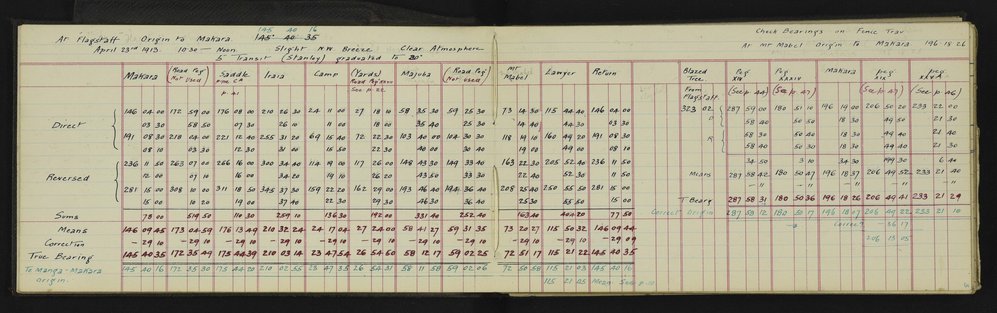 At Flagstaff Origin to Makara. 145 40 16
145° 40 35
April 23rd 1913. 10.30 — Noon. Slight N.W. Breeze Clear Atmosphere
5" Transit (Stanley) graduated to 20"
Check Bearings on Fenic Trav
At Mt Mabel Origin to Makara 196 18 26
Makara (Road Peg Not Used) Saddle Iraia Camp (Yards) Majuba (Road Peg Not Used) Mt Mabel Lawyer Return Blazed Tree Peg XIV Peg XXXIV Makara peg peg
p. 41 See p. 22 From Flagstaff (See p 44) (See p 47) (See p 47) (See p 46)
Direct
146 04 00 172 59 00 176 08 00 210 26 30 24 11 00 27 18 10 58 35 30 59 25 30 73 14 30 115 44 40 146 04 00 323 02 287 59 00 180 51 10 196 19 00 206 50 20 233 22 00
03 30 58 50 07 30 26 00 11 00 18 00 35 40 25 30 14 40 44 30 03 30 " 58 40 50 30 18 30 49 50 21 30
191 08 30 218 04 00 221 12 40 255 31 20 69 15 40 72 22 30 103 40 00 104 30 30 118 19 10 160 49 20 191 08 30 R 58 30 50 40 18 30 49 40 21 40
08 10 03 30 12 30 31 00 15 50 22 30 40 00 30 40 19 00 49 00 08 10 58 40 50 30 18 30 49 40 21 30
Reversed
236 11 50 263 07 00 266 16 00 300 34 40 114 19 00 117 26 00 148 43 30 149 33 40 163 22 30 205 52 40 236 11 50 34 50 3 10 34 30 199 30 6 40
12 00 07 10 16 00 34 20 19 10 26 20 43 50 33 30 22 40 52 30 11 50 Means 287 58 42 180 50 47 196 18 37 206 49 52 233 21 40
281 15 00 308 10 00 311 18 50 345 37 30 159 22 20 162 29 00 193 46 40 194 36 40 208 25 40 250 55 50 281 15 00 — 11 — 11 — 11 — 11
15 00 10 20 19 00 37 40 22 30 29 30 46 30 36 40 25 30 55 50 15 00 T Bearg 287 58 31 180 50 36 196 18 26 206 49 41 233 21 29
Sums 78 00 519 50 110 30 259 10 136 30 192 00 331 40 252 40 163 40 404 20 77 50 Correct Origin 287 58 12 180 50 17 196 18 07 206 49 22 233 21 10
Means 146 09 45 173 04 59 176 13 49 210 32 24 24 17 04 27 24 00 58 41 27 59 31 35 73 20 27 115 50 32 146 09 44
Correction — 29 10 — 29 10 — 29 10 — 29 10 — 29 10 — 29 10 — 29 10 — 29 10 — 29 10 — 29 10 — 29 09
True Bearing 145 40 35 172 35 49 175 44 39 210 03 14 23 47 54 26 54 50 58 12 17 59 02 25 72 51 17 115 21 22 145 40 35
To Manga-Makara Origin. 145 40 16 172 35 30 175 44 20 210 02 55 23 47 35 26 54 31 58 11 58 59 02 06 72 50 58 115 21 03 145 40 16
115 21 05 Mean See p.